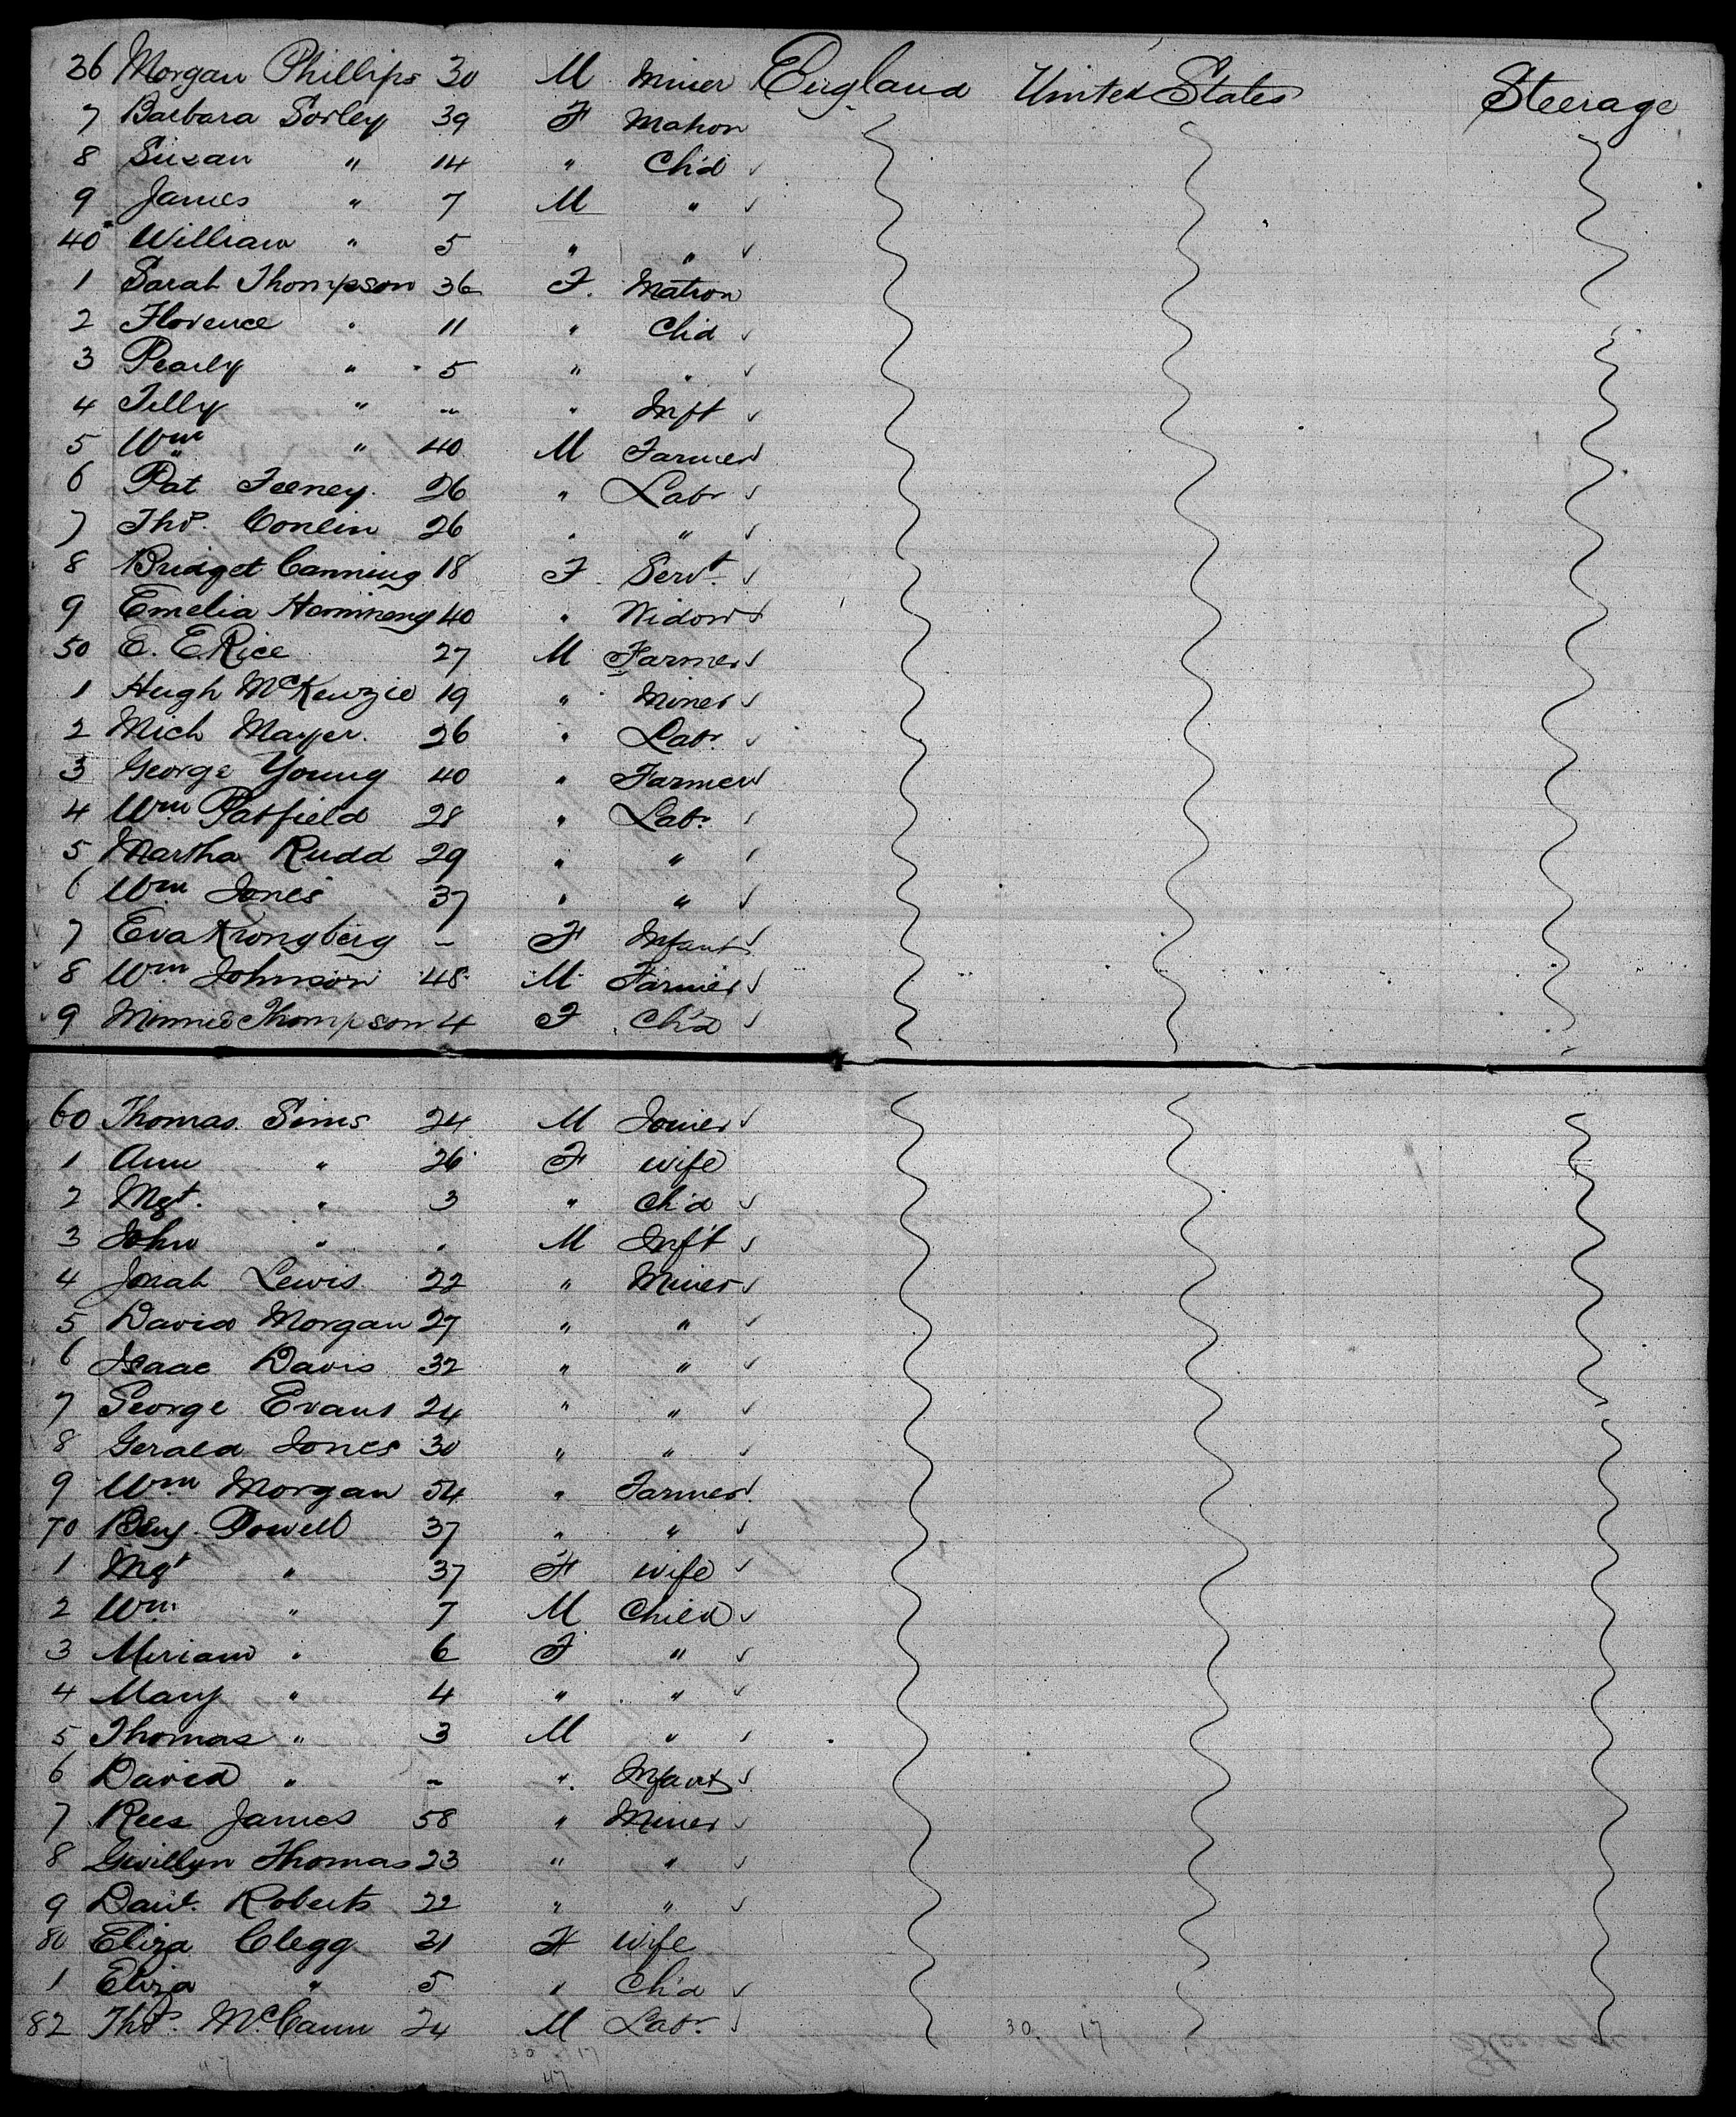 36 Morgan Phillips 30 M Miner England United States Steerage
7 Barbara Sorley 39 F Matron
8 Susan " 14 " Ch'd
9 James " 7 M "
40 William " 5 " "
1 Sarah Thompson 36 F. Matron
2 Florence " 11 " Ch'd
3 Pearly " 5 " "
4 Tilly " " " Inft
5 Wm " 40 M Farmer
6 Pat Feeney. 26 " Labr
7 Thos. Conlin 26 " "
8 Bridget Canning 18 F. Servt.
9 Emelia 40 " Widow
50 E. E Rice 27 M Farmer
1 Hugh McKenzie 19 " Miner
2 Mich Mayer. 26 " Labr.
3 George Young 40 " Farmer
4 Wm Patfield 28 " Labr.
5 Martha Rudd 29 " "
6 Wm Jones 37 " "
7 Eva Krongberg - F Infant
8 Wm Johnson 48 M Farmer
9 Minnie Thompson 4 F Ch'd
60 Thomas Sims 24 M Joiner
1 Ann " 26 F wife
2 Mgt. " 3 " Ch'd
3 John " " M Inf't
4 Jonah Lewis 22 " Miner
5 David Morgan 27 " "
6 Isaac Davis 32 " "
7 George Evans 24 " "
8 Gerald Jones 30 " "
9 Wm Morgan 54 " Farmer
70 Benj. Powell 37 " "
1 Mgt " 37 F wife
2 Wm " 7 M Child
3 Miriam " 6 F "
4 Mary " 4 " "
5 Thomas " 3 M "
6 David " - " Infant
7 Rees James 58 " Miner
8 Gwillyn Thomas 23 " "
9 Danl. Roberts 22 " "
80 Eliza Clegg 31 F wife
1 Eliza " 5 " Ch'd
82 Thos. McCann 24 M Labr.
30 17
30 17
47 47